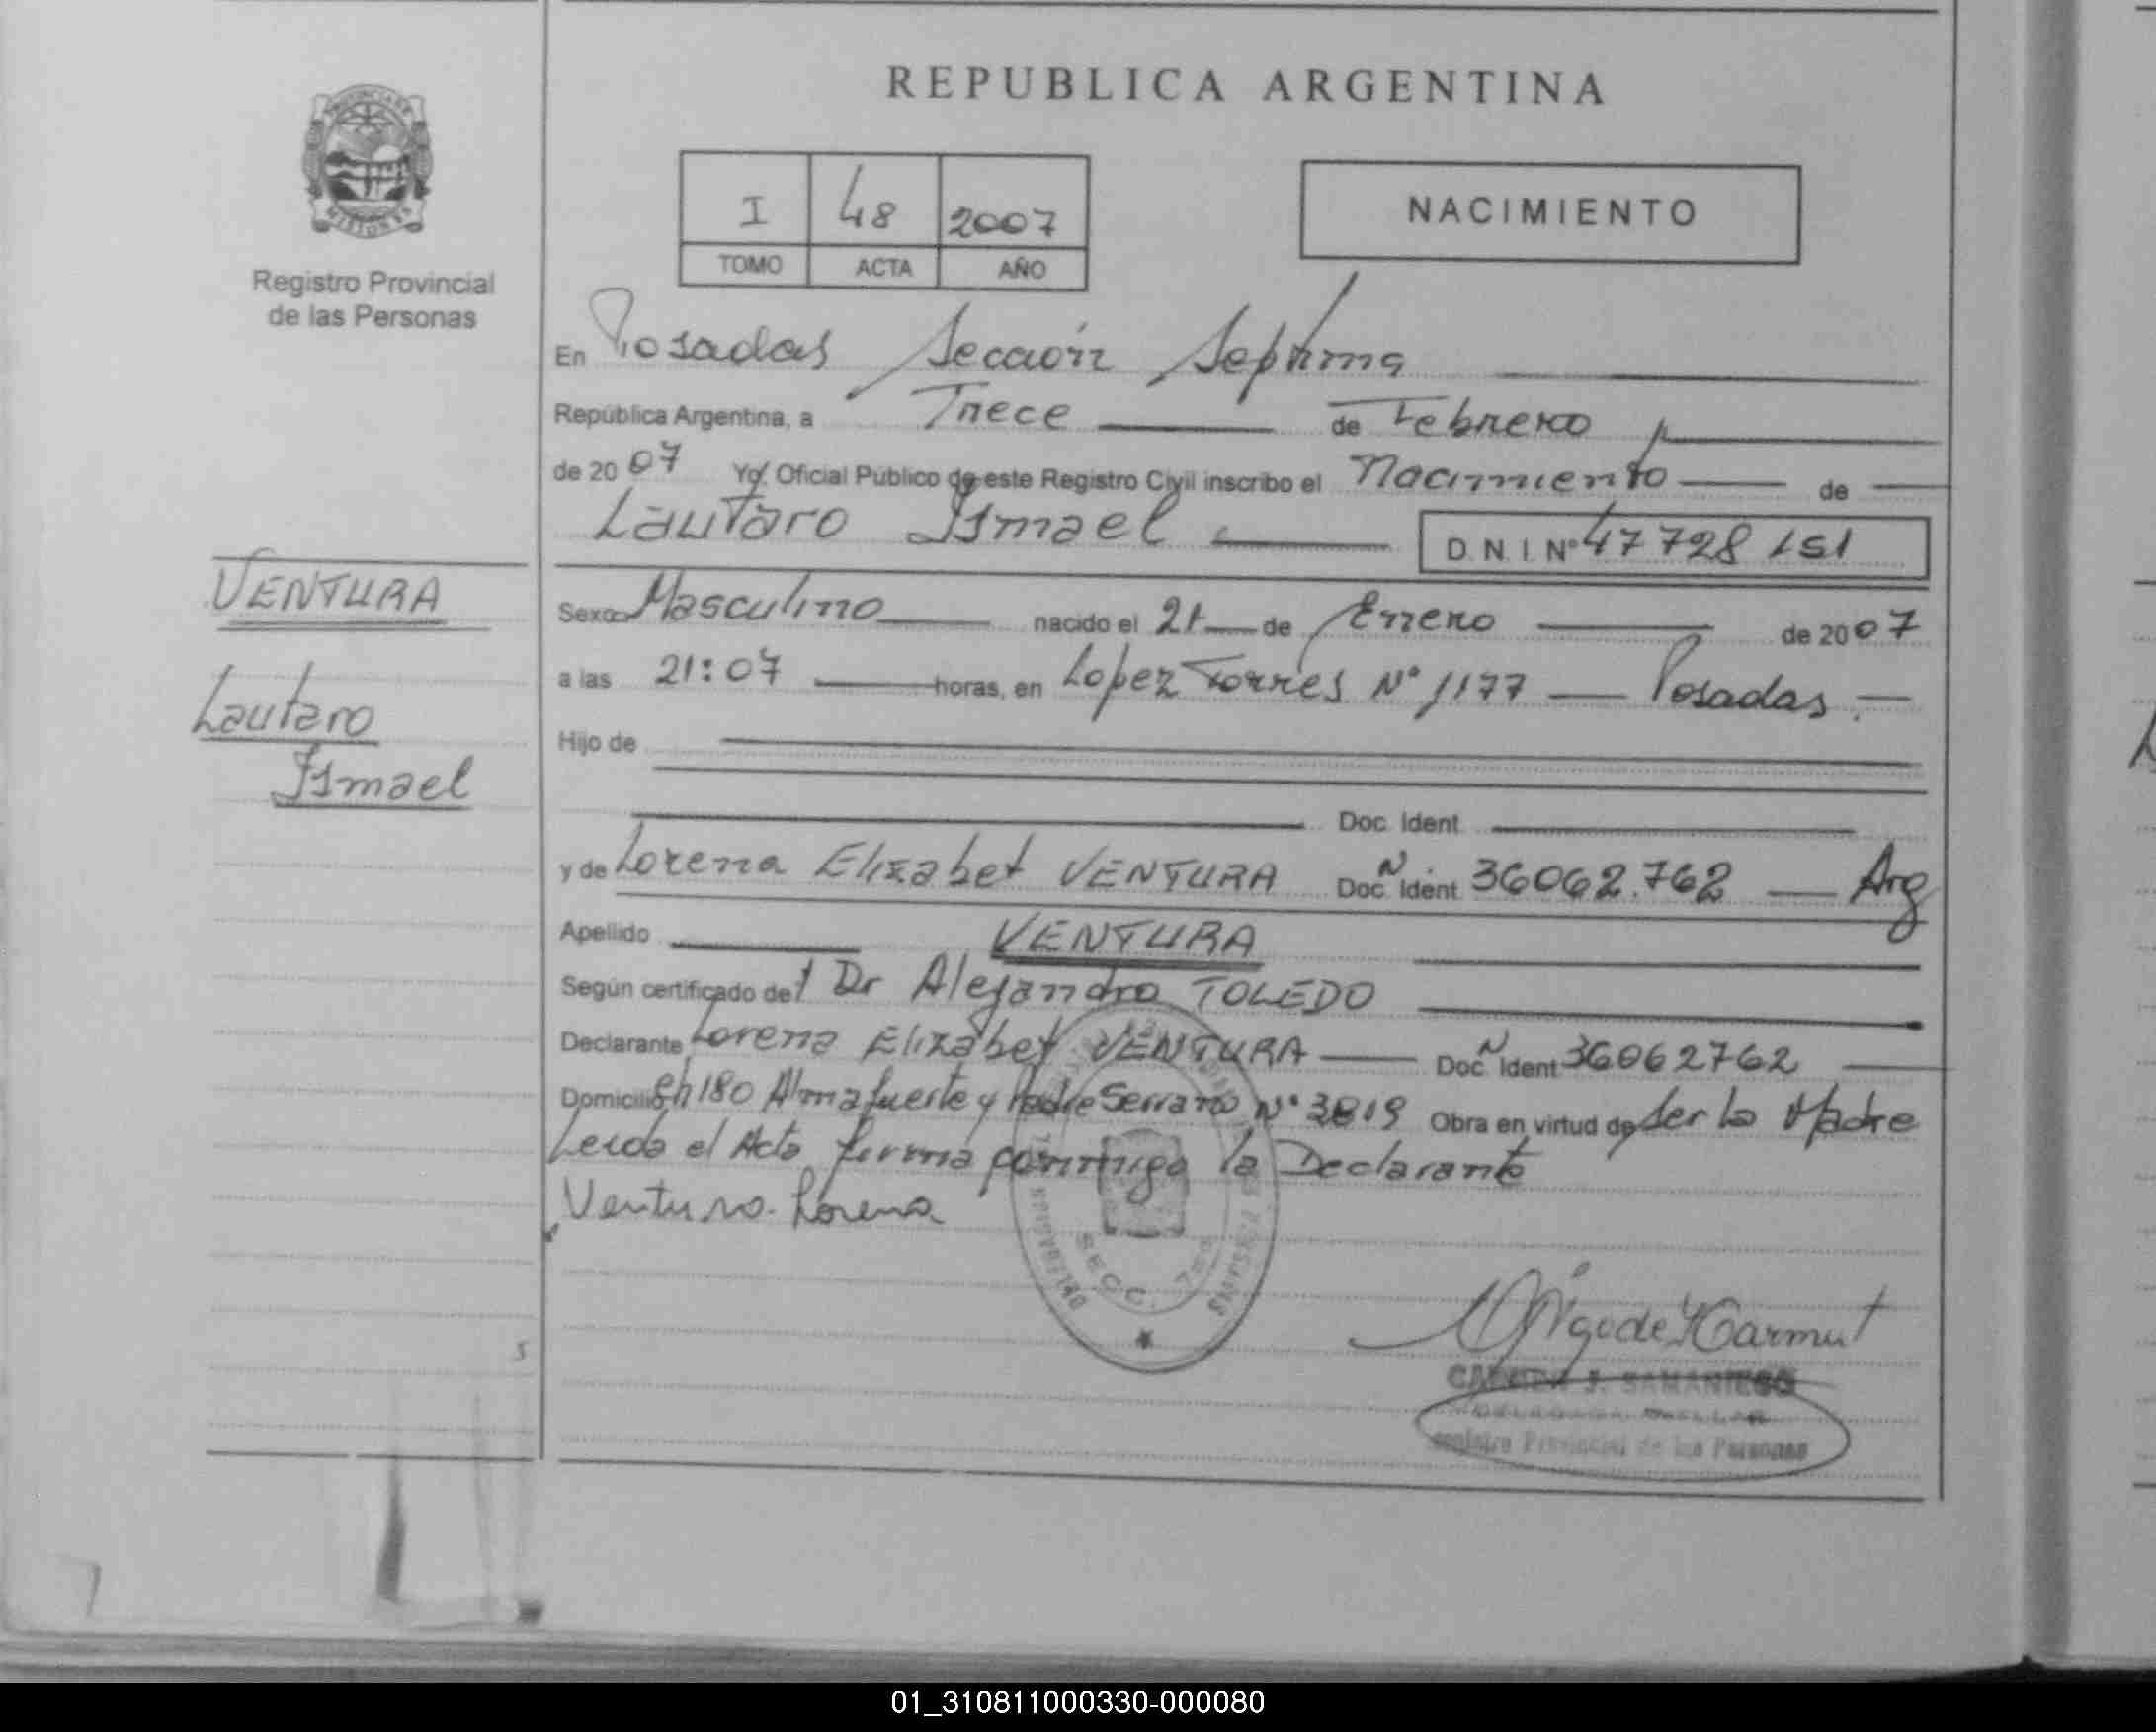 REPUBLICA ARGENTINA
PROVINCIA DE
MISIONES
Registro Provincial
de las Personas
I 48 2007
TOMO ACTA AÑO
NACIMIENTO
En Posadas Sección Septima
República Argentina, a Trece de Febrero
de 20 07 Yo, Oficial Público de este Registro Civil inscribo el Nacimiento de
Lautaro Ismael D.N.I. Nº 47728151
VENTURA
Lautaro
Ismael
Sexo Masculino nacido el 21 de Enero de 20 07
a las 21:07 horas, en Lopez Torres Nº 1177 Posadas.
Hijo de
Doc. Ident.
y de Lorena Elizabet VENTURA Doc. N Ident 36062.762 Arg
Apellido VENTURA
Según certificado del Dr Alejandro TOLEDO
Declarante Lorena Elizabet VENTURA Doc. N Ident 36062762
Domicilio Ch 180 Almafuerte y Padre Serrano Nº 3819 Obra en virtud de ser la Madre
Leida el Acta firma conmigo la Declarante
Ventura Lorena
SECC. 7
CARMEN J. SAMANIEGO
Registro Provincial de las Personas
01_310811000330-000080